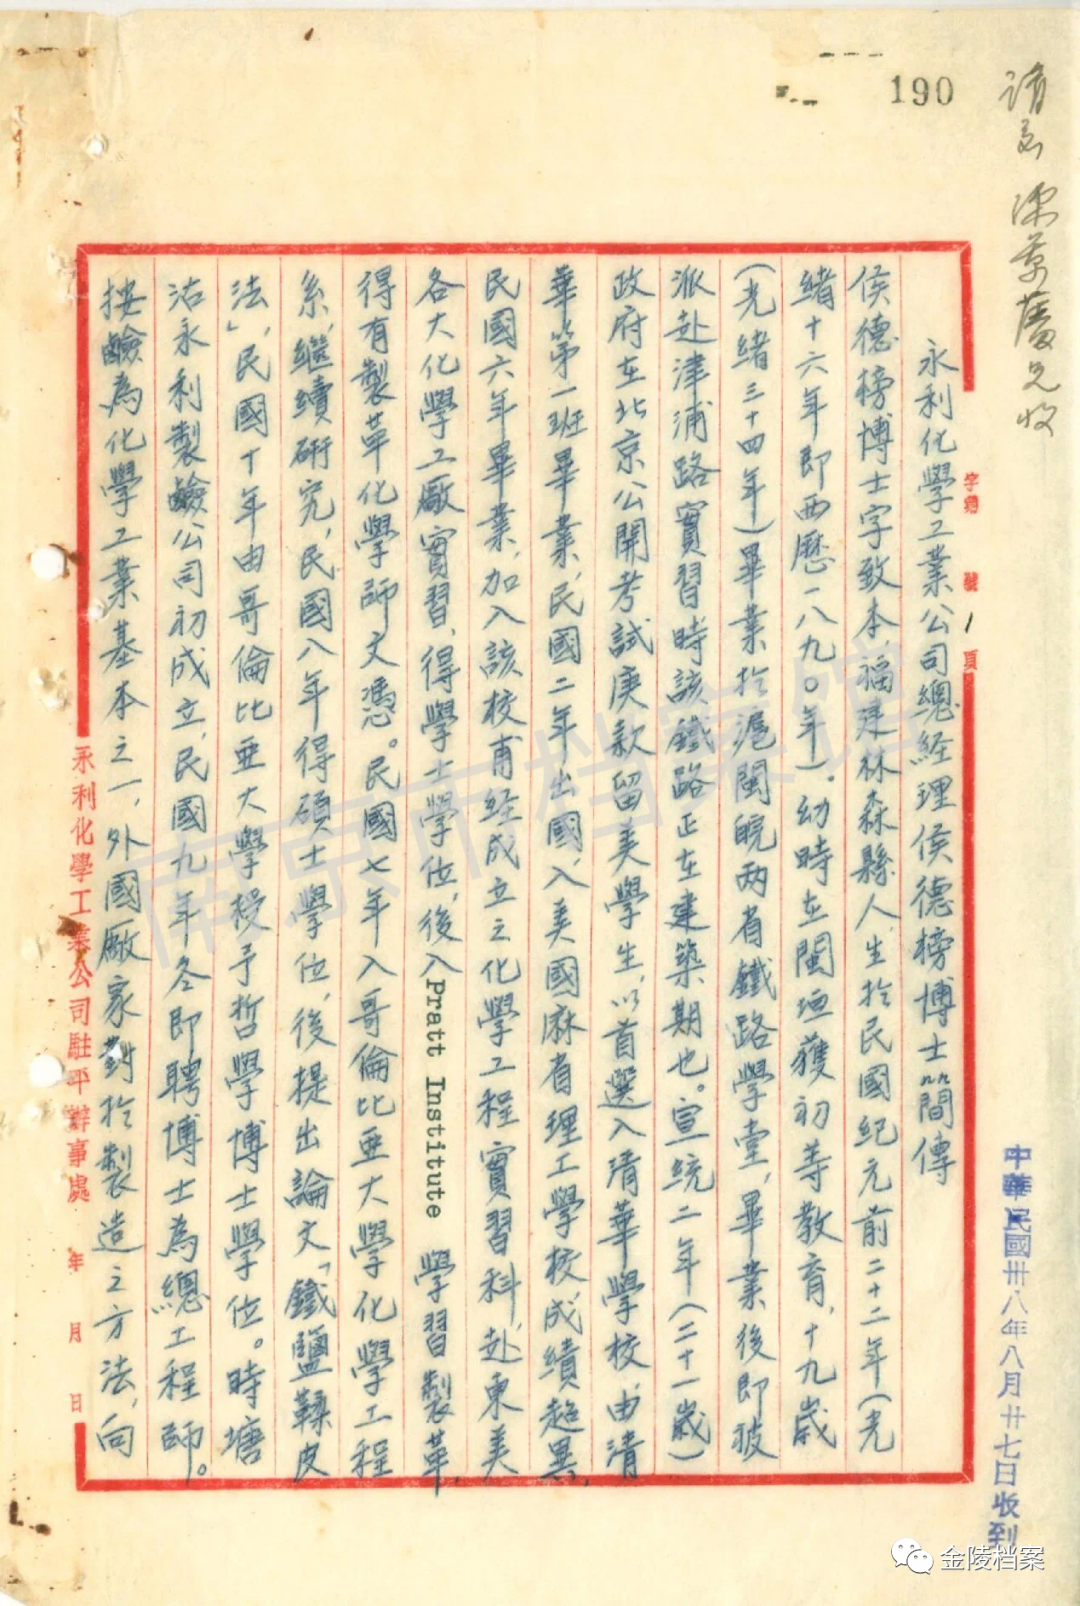 190
字第 號 1 頁
永利化學工業公司總經理侯德榜博士簡傳
侯德榜博士字致本,福建林森縣人,生於民國紀元前二十二年(光
緒十六年即西歷一八九〇年)。幼時在閩垣獲初等教育,十九歲
(光緒三十四年)畢業於滬閩皖兩省鐵路學堂,畢業後即被
派赴津浦路實習時該鐵路正在建築期也。宣統二年(二十一歲)
政府在北京公開考試庚款留美學生,以首選入清華學校,由清
華第一班畢業,民國二年出國,入美國麻省理工學校,成績超異,
民國六年畢業,加入該校甫經成立之化學工程實習科,赴東美
各大化學工廠實習,得學士學位,後入Pratt Institute 學習製革,
得有製革化學師文憑。民國七年入哥倫比亞大學化學工程
系,繼續研究,民國八年得碩士學位,後提出論文「鐵鹽鞣皮
法」,民國十年由哥倫比亞大學授予哲學博士學位。時塘
沽永利製鹼公司初成立,民國九年冬即聘博士為總工程師。
按鹼為化學工業基本之一,外國廠家對於製造之方法,向
永利化學工業公司駐平辦事處 年 月 日
中華民國卅八年八月廿七日收到
南京市档案馆
金陵档案